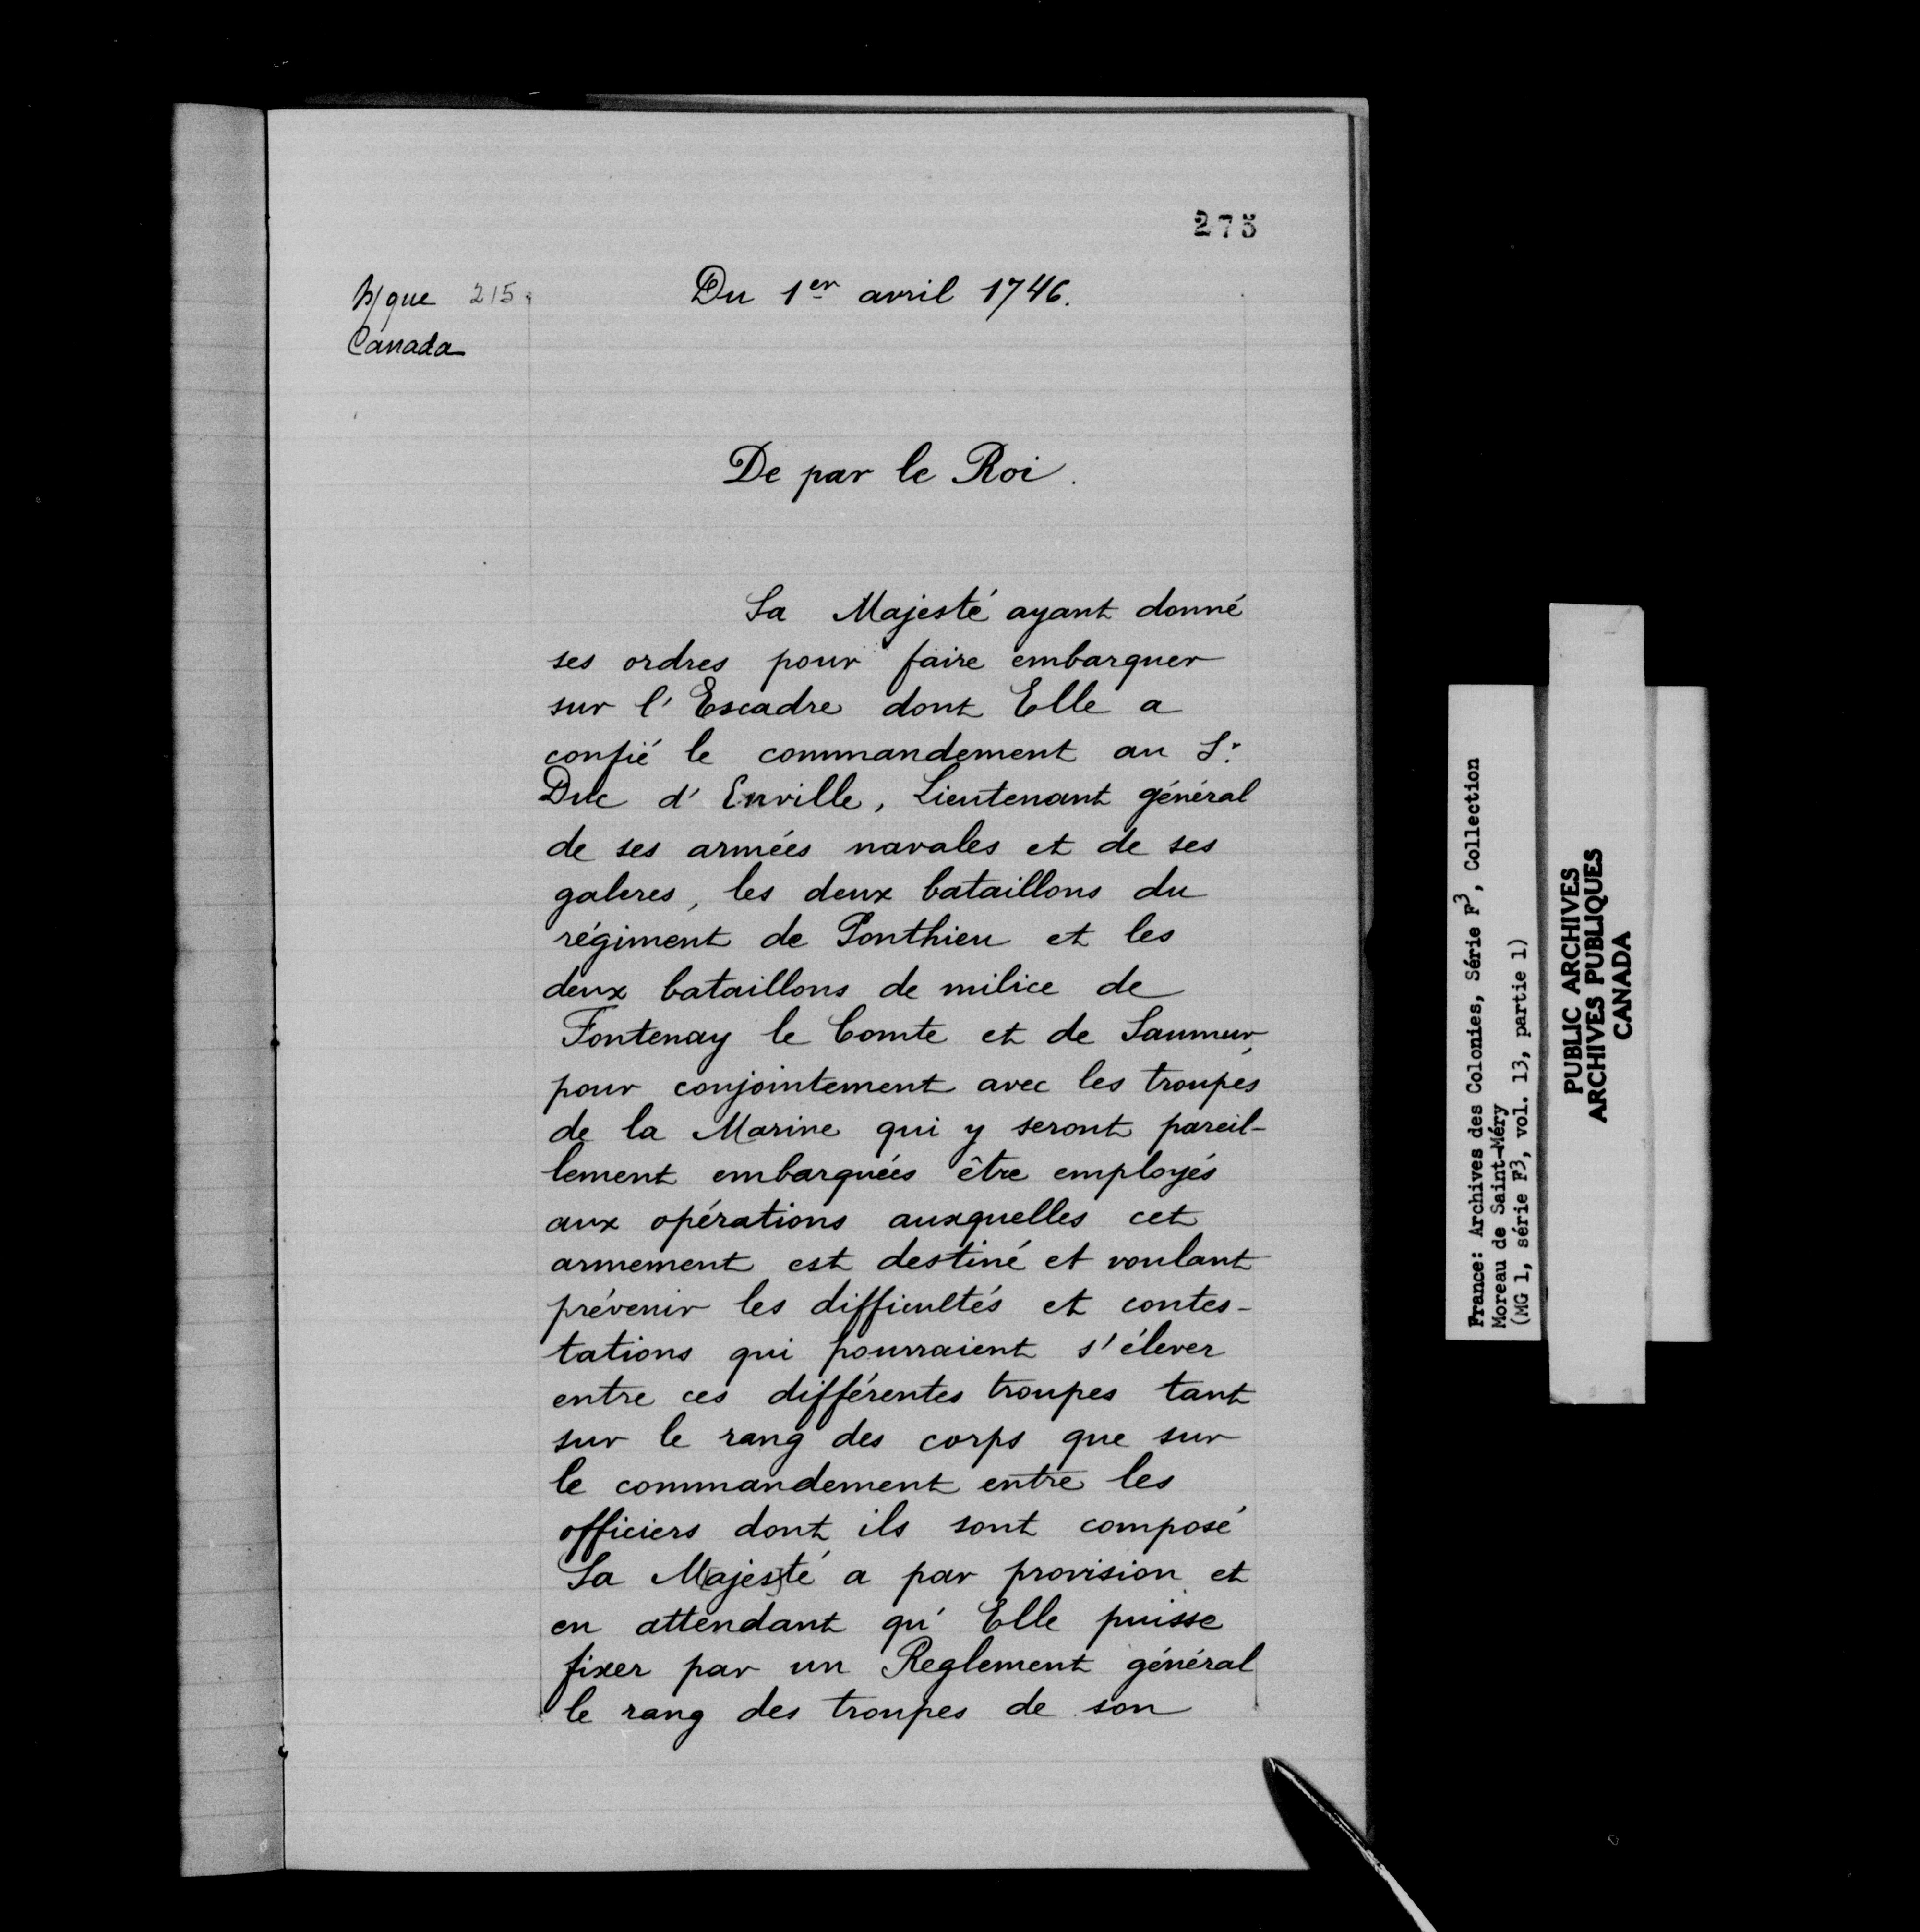 275
h/que 215
Canada
Du 1er avril 1746.
De par le Roi.
Sa Majesté ayant donné
ses ordres pour faire embarquer
sur l'Escadre dont Elle a
confié le commandement au Sr.
Duc d'Enville, Lieutenant général
de ses armées navales et de ses
galeres, les deux bataillons du
régiment de Ponthieu et les
deux bataillons de milice de
Fontenay le Comte et de Saumur,
pour conjointement avec les troupes
de la Marine qui y seront pareil-
lement embarquées être employés
aux opérations auxquelles cet
armement est destiné et voulant
prévenir les difficultés et contes-
tations qui pourraient s'élever
entre ces différentes troupes tant
sur le rang des corps que sur
le commandement entre les
officiers dont ils sont composé
Sa Majesté a par provision et
en attendant qu'Elle puisse
fixer par un Reglement général
le rang des troupes de son
France: Archives des Colonies, Série F3, Collection
Moreau de Saint-Méry
(MG 1, série F3, vol. 13, partie 1)
PUBLIC ARCHIVES
ARCHIVES PUBLIQUES
CANADA